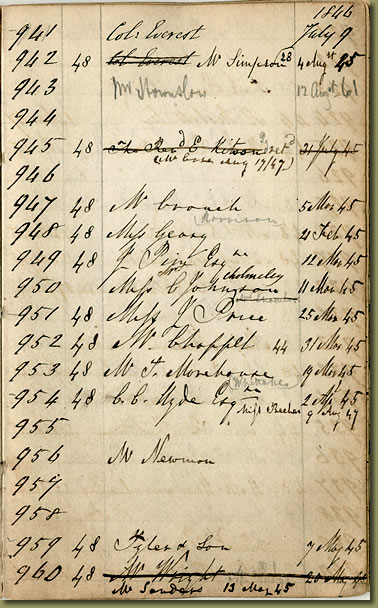 1846
941 Col: Everest July 9
942 48 Col Everest Mr Simpson 28 4 Augst 45
943 Mr Hounslow 12 Augst 61
944
945 48 The Revd E. Kitson 31 July 45
(Mr Aug 17/47)
946
947 48 Mr Crouch 5 Mar 45
Morrison
948 48 Miss Georg 21 Feb 45
949 48 J Pein Esqre 12 Mar 45
Cholmeley
950 Miss C Johnson 11 Mar 45
951 48 Miss J Price 25 Mar 45
952 48 Mr Chappel 44 31 Mar 45
953 48 Mr T. Morehouse 19 Mar 45
Whitaker
954 48 C. C. Hyde Esqre 2 45
Miss Archer 9 Aug 47
955
956 Mr Newman
957
958
959 48 Tyler & Son 7 May 45
960 48 Mr Wright 20 May 45
Mr Sanders 13 May 45